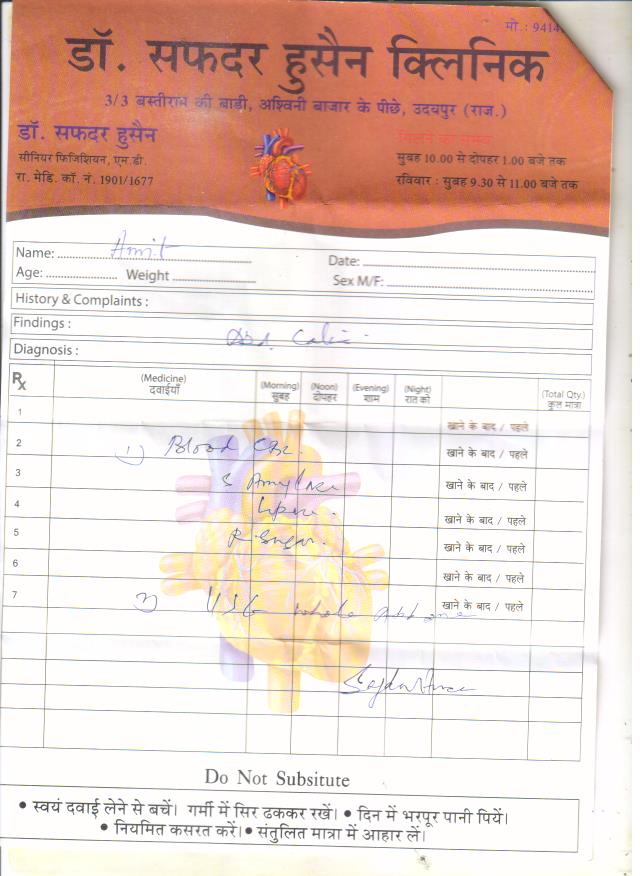 मो.: 9414
डॉ. सफदर हुसैन क्लिनिक
3/3 बस्तीराम की बाड़ी, अश्विनी बाजार के पीछे, उदयपुर (राज.)
डॉ. सफदर हुसैन
सीनियर फिजिशियन, एम.डी.
रा. मेडि. कॉ. नं. 1901/1677
सुबह 10.00 से दोपहर 1.00 बजे तक
रविवार : सुबह 9.30 से 11.00 बजे तक
Name: Amit Date:
Age: Weight Sex M/F:
History & Complaints :
Findings :
Abd. Colic
Diagnosis :
Rx (Medicine) (Morning) (Noon) (Evening) (Night) (Total Qty.)
दवाईयाँ सुबह दोपहर शाम रात को कुल मात्रा
1 खाने के बाद / पहले
2 1) Blood CBC. खाने के बाद / पहले
3 S Amylase खाने के बाद / पहले
4 Lipase. खाने के बाद / पहले
5 R. Sugar. खाने के बाद / पहले
6 खाने के बाद / पहले
7 2) USG whole abdomen खाने के बाद / पहले
Do Not Subsitute
• स्वयं दवाई लेने से बचें। गर्मी में सिर ढककर रखें। • दिन में भरपूर पानी पियें।
• नियमित कसरत करें। • संतुलित मात्रा में आहार लें।